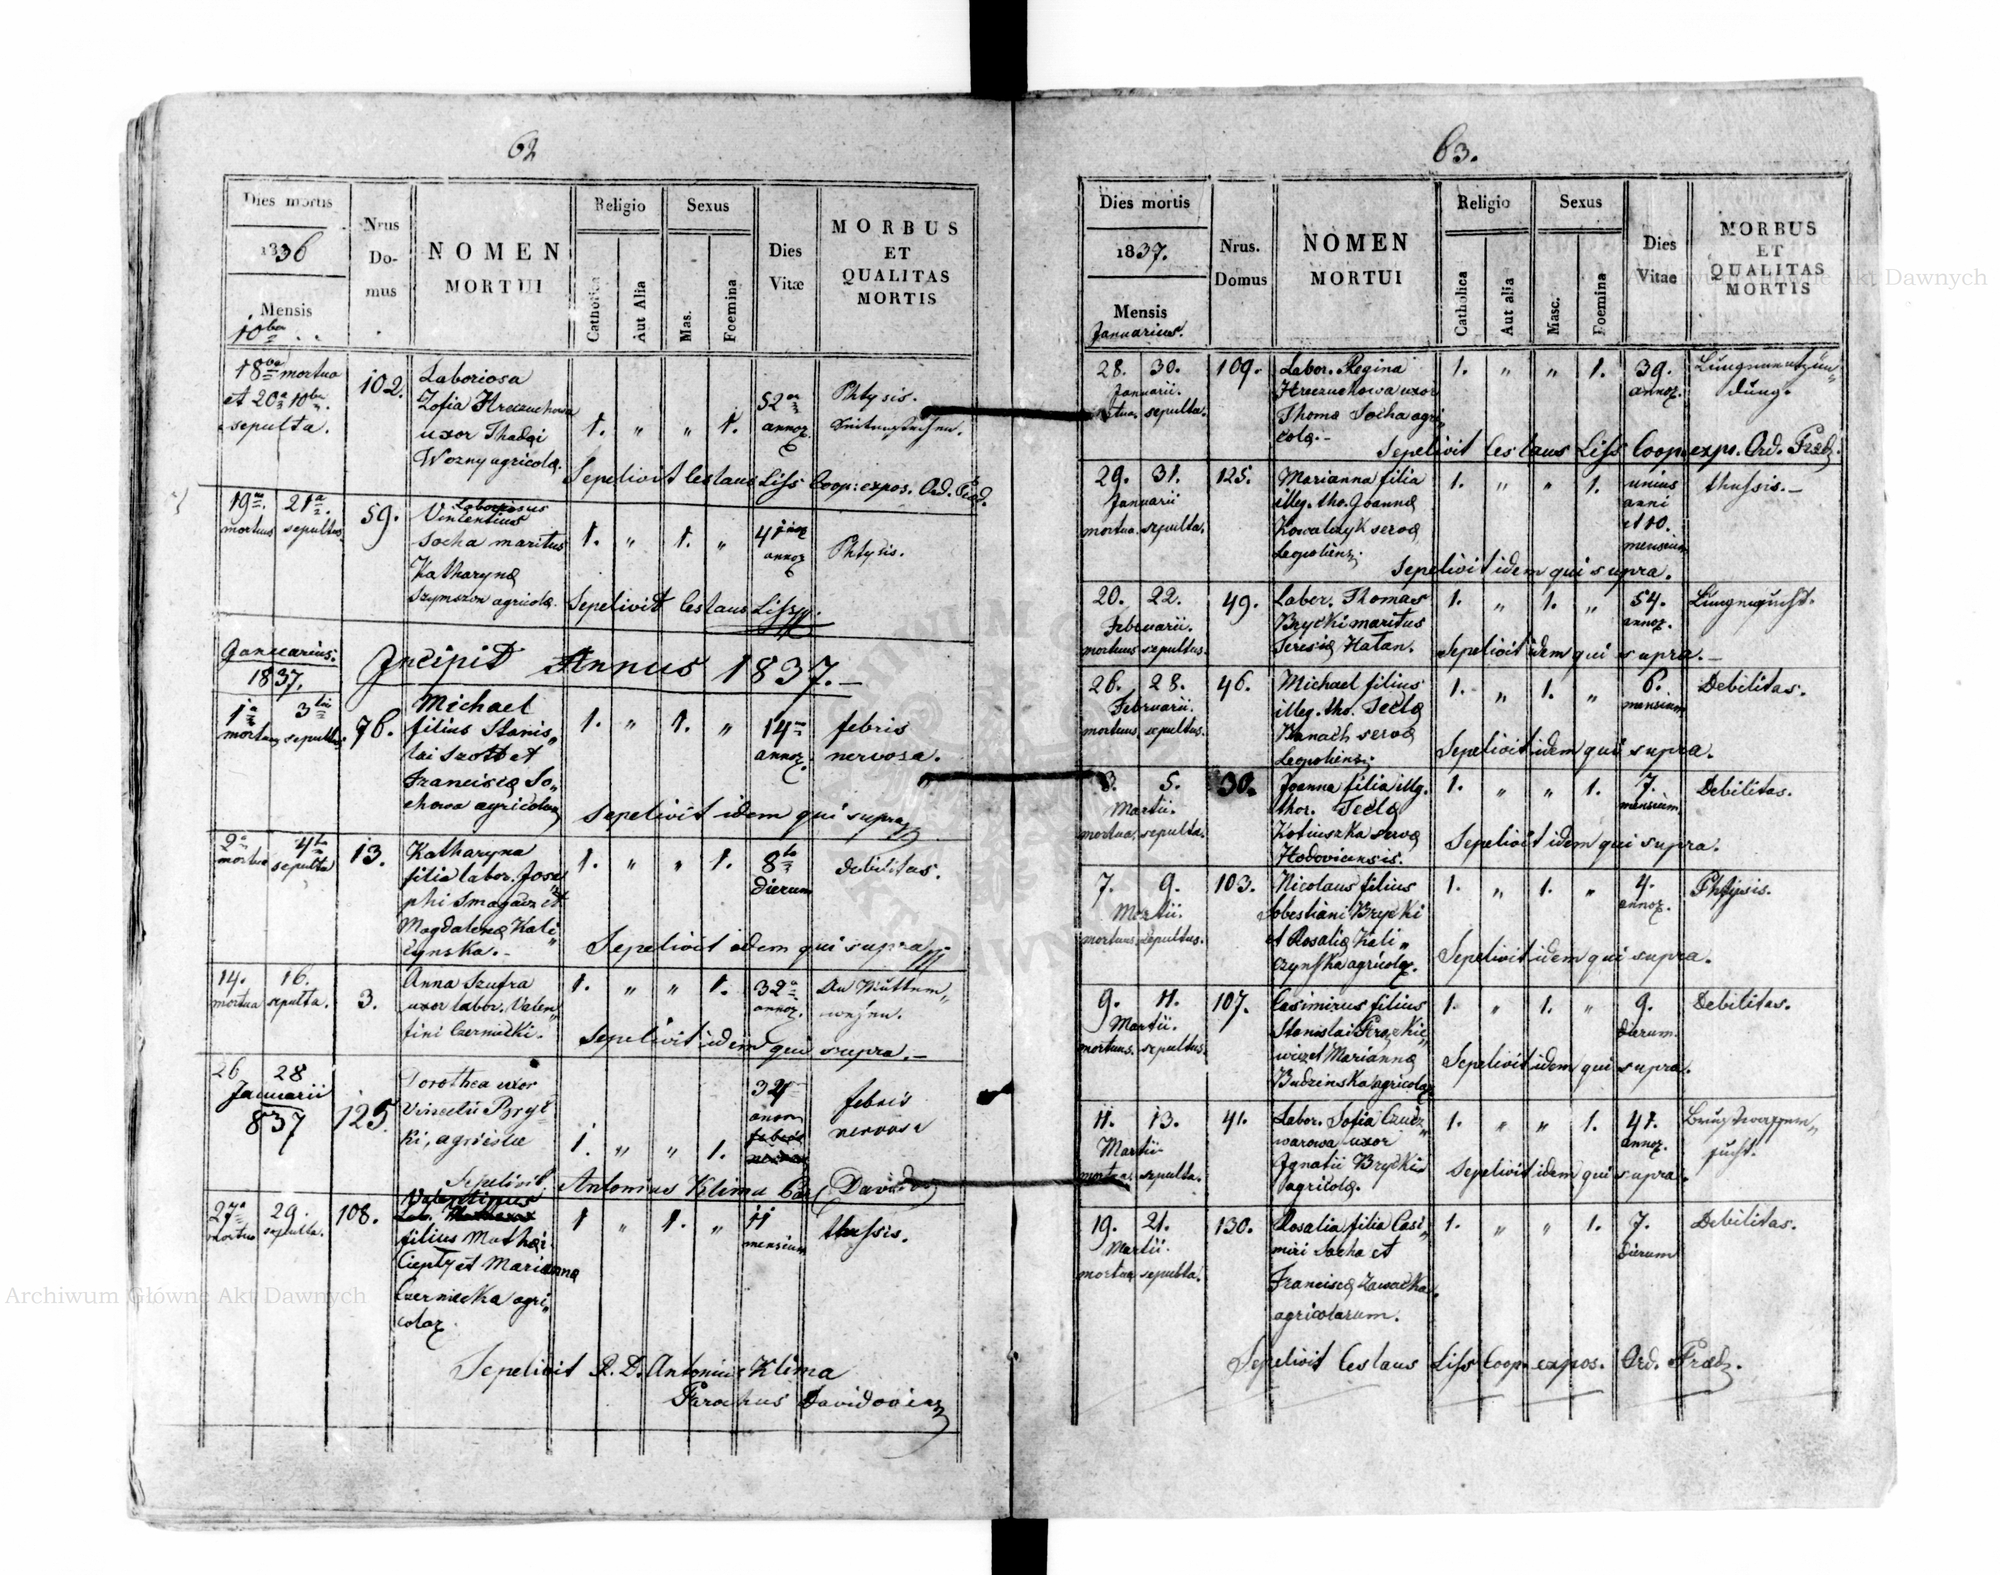 62
Dies mortis
1836
Mensis
10bri
Nrus Do-mus
NOMEN MORTUI
Religio
Catholica
Aut Alia
Sexus
Mas.
Foemina
Dies Vitæ
MORBUS ET QUALITAS MORTIS
18va mortua
et 20a 10bris
sepulta.
102.
Laboriosa
Zofia Hreczuchowa
uxor Thadæi
Wozny agricolæ.
1. „ „ 1.
52
annor.
Phtysis.
Sepelivit Ceslaus Liss Coop: expos. Ord. Præd.
19a 21a
mortuus sepultus.
59.
Laboriosus
Vincentius
Socha maritus
Katharynæ
Szymszon agricola.
1. „ 1. „
41
annor.
Phtysis.
Sepelivit Ceslaus Liss
Januarius.
1837.
Incipit Annus 1837.—
1a 3tia
mortuus sepultus.
76.
Michael
filius Stanis„
lai Szott et
Franciscæ So„
chowa agricolar.
1. „ 1. „
14
annor.
febris
nervosa.
Sepelivit idem qui supra
2a 4ta
mortua sepulta
13.
Katharyna
filia labor. Jose
phi Smagacz et
Magdalenæ Kali„
czynska.-
1. „ „ 1.
8to
dierum
debilitas.
Sepelivit idem qui supra
14. 16.
mortua sepulta.
3.
Anna Szufra
uxor labor. Valen„
tini Czernicki.
1. „ „ 1.
32
annor.
Sepelivit idem qui supra.—
26 28
Januarii
837
125.
Dorothea uxor
Vincetii Bryc
ki, agricolæ
1. „ „ 1.
32
anor
febris
nervosa
febris
nervosa
Sepelivit Antonius Klima Par. (Davidov)
27a 29.
mortuus sepulta.
108.
Valentinus
filius Mathæi
Ciepły et Marianna
Czernecka agri„
colar.
1 „ 1. „
11
mensium
thussis.
Sepelivit R. D. Antonius Klima
Parochus Davidovien
63.
Dies mortis
1837.
Mensis
Januarius.
Nrus. Domus
NOMEN MORTUI
Religio
Catholica
Aut alia
Sexus
Masc.
Foemina
Dies Vitae
MORBUS ET QUALITAS MORTIS
28. 30.
Januarii.
mortua. sepulta.
109.
Labor. Regina
Hreczuchowa uxor
Thomæ Socha agri
colæ.-
1. „ „ 1.
39.
annor.
Lungenentzün„
dung.
Sepelivit Ceslaus Liss Coop. expo. Ord. Præd.
29. 31.
Januarii
mortua. sepulta.
125.
Marianna filia
illeg. tho. Joannæ
Kowalczyk servæ
Leopoliens.
1. „ „ 1.
unius
anni
et 10.
mensium
thussis.—
Sepelivit idem qui supra.
20. 22.
Februarii.
mortuus sepultus.
49.
Labor. Thomas
Brycki maritus
Teresiæ Hatan.
1. „ 1. „
54.
annor.
Lungensucht.
Sepelivit idem qui supra.—
26. 28.
Februarii.
mortuus sepultus.
46.
Michael filius
illeg. tho. Teclæ
Banach servæ
Leopoliens.
1. „ 1. „
6.
mensium
Debilitas.
Sepelivit idem qui supra.
3. 5.
Martii.
mortua. sepulta.
30.
Joanna filia illeg.
thor. Teclæ
Kotiuszka servæ
Hodoviciensis.
1. „ „ 1.
7.
mensium.
Debilitas.
Sepelivit idem qui supra.
7. 9.
Martii.
mortuus sepultus.
103.
Nicolaus filius
Sobestiani Brycki
et Rosaliæ Kali„
czynska agricolar.
1. „ 1. „
4.
annor.
Phtysis.
Sepelivit idem qui supra.
9. 11.
Martii.
mortuus. sepultus.
107.
Casimirus filius
Stanislai
wicz et Mariannæ
Budzinska agricolar.
1. „ 1. „
9.
dierum.
Debilitas.
Sepelivit idem qui supra.
11. 13.
Martii
mortua. sepulta.
41.
Labor. Sofia Czucz„
warowa uxor
Ignatii Brycki
agricolæ.
1. „ „ 1.
41.
annor.
Brustwassern„
sucht.
Sepelivit idem qui supra.
19. 21.
Martii.
mortua sepulta.
130.
Rosalia filia Casi„
miri Socha et
Franciscæ Zawacka.
agricolarum.
1. „ „ 1.
7.
dierum
Debilitas.
Sepelivit Ceslaus Liss Coop. expos. Ord. Præd.
Archiwum Główne Akt Dawnych
Archiwum Główne Akt Dawnych